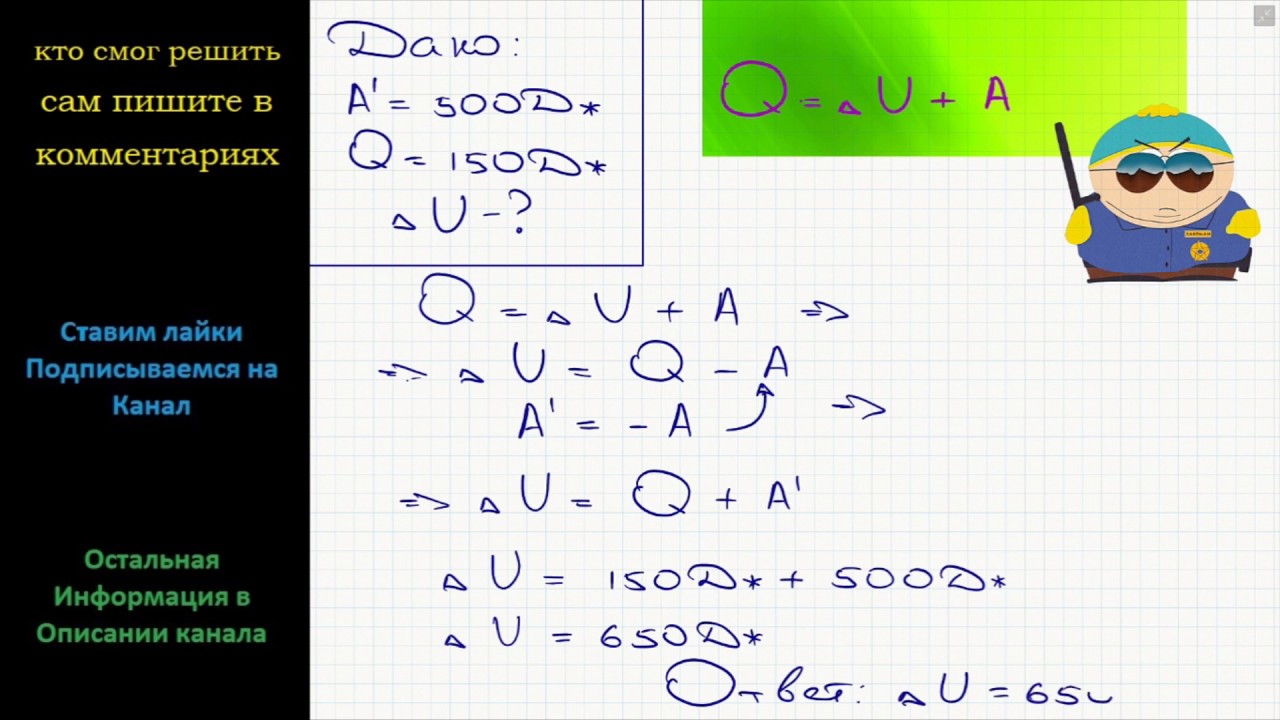 кто смог решить
сам пишите в
комментариях
Ставим лайки
Подписываемся на
Канал
Остальная
Информация в
Описании канала
Дано:
A' = 500Дж
Q = 150Дж
△U - ?
Q = △U + A
Q = △U + A ⇒
⇒ △U = Q - A
A' = - A ⇒
⇒ △U = Q + A'
△U = 150Дж + 500Дж
△U = 650Дж
Ответ: △U = 65